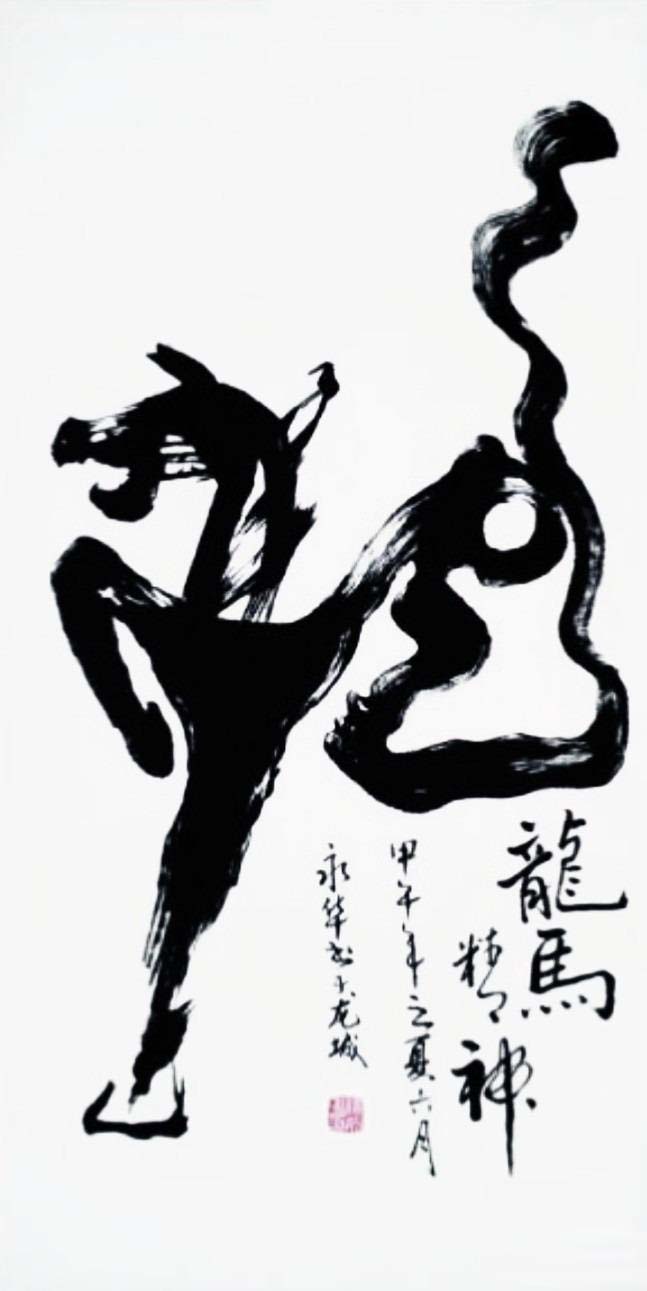 龍馬
精神
甲午年之夏六月
永华书于龙城